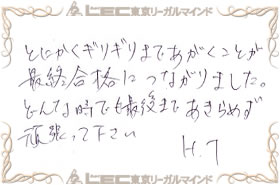 LEC東京リーガルマインド
とにかくギリギリまであがくことが
最終合格につながりました。
どんな時でも最後まであきらめず
頑張って下さい
H.T
LEC東京リーガルマインド